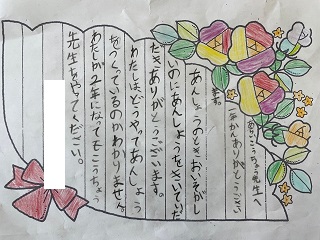 こうちょう先生へ
一年かんありがとうござい
ます。
あんしょうのときおいそがし
いのにあんしょうをきいていた
だきありがとうございます。
わたしは、どうやってあんしょう
をつくっているのかわかりません。
わたしが2年になってもこうちょう
先生をやってください。